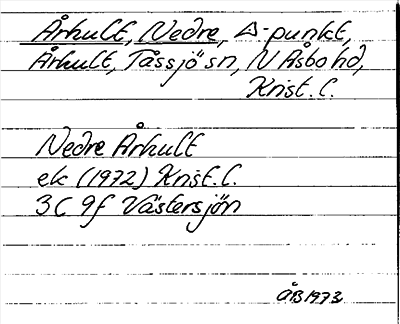 Århult, Nedre, △-punkt,
Århult, Tåssjö sn, N Åsbo hd,
Krist. l.
Nedre Århult
ek (1972) Krist. l.
3C 9f Västersjön
ÅB 1973